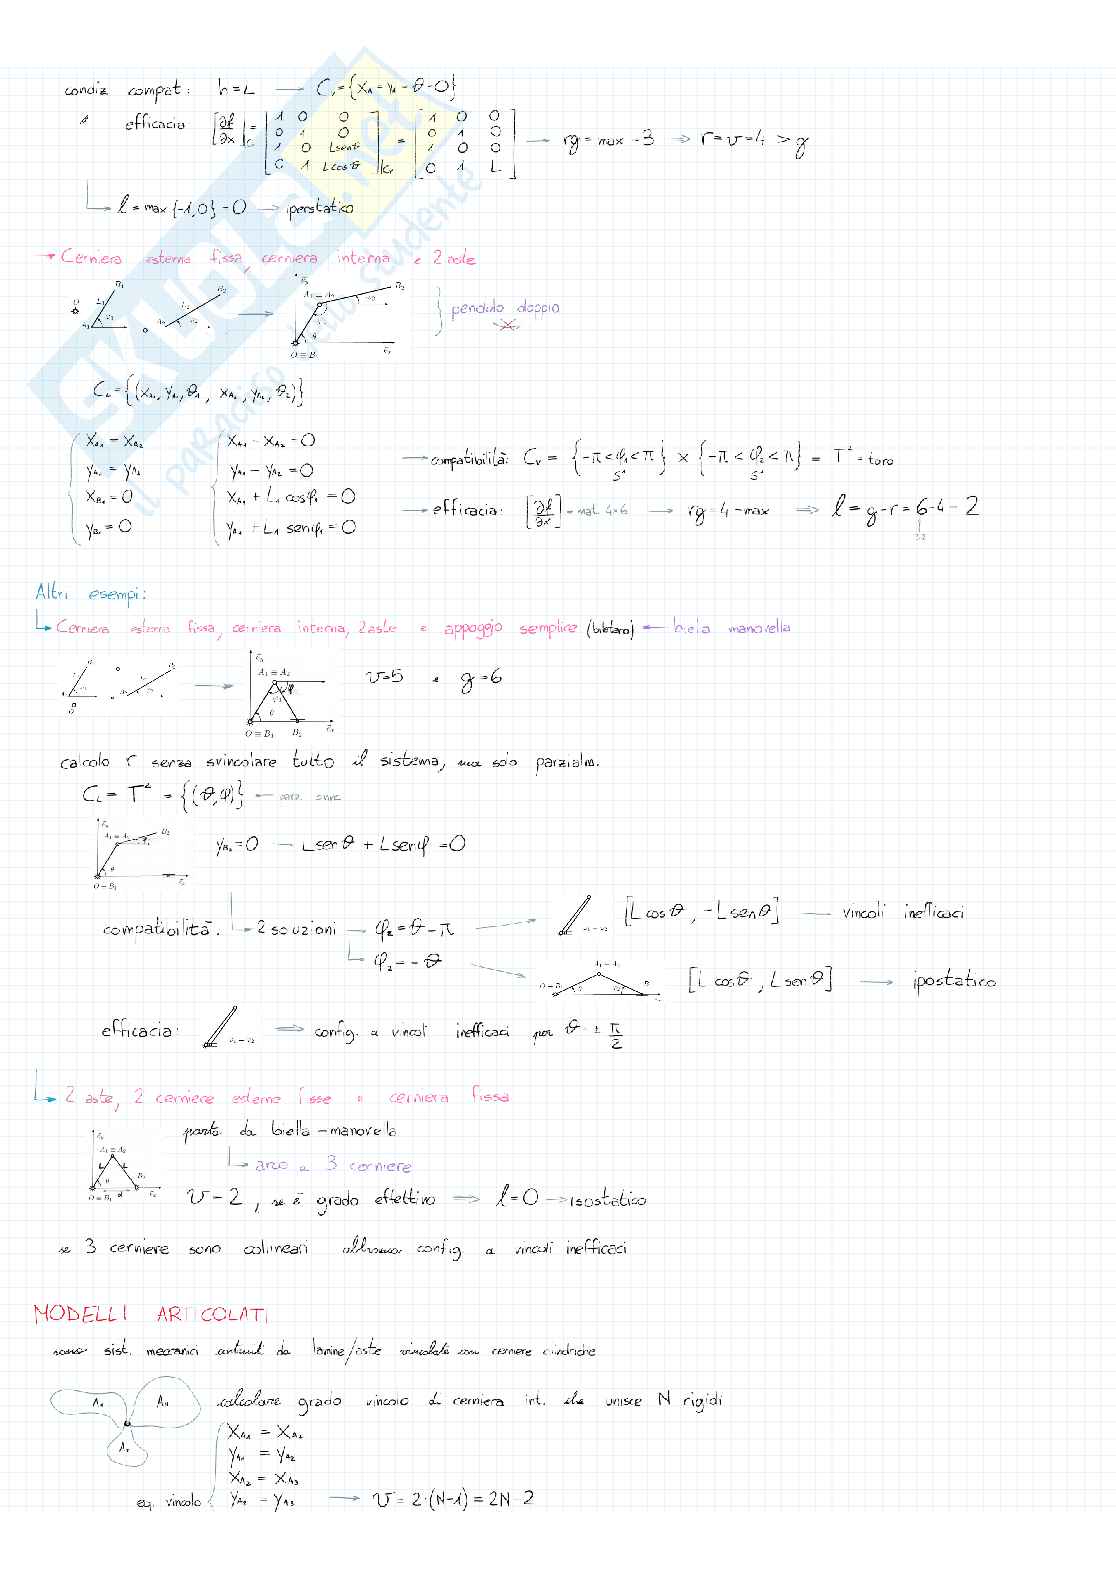 condiz compat: h=L → Cᵥ={xₐ=yₐ=θ=0}
efficacia [∂f/∂x]|c = [1 0 0; 0 1 0; 1 0 Lsenθ; 0 1 Lcosθ]|cᵥ = [1 0 0; 0 1 0; 1 0 0; 0 1 L] → rg=max=3 ⇒ r=v=4 > g
l = max{-1,0}=0 → iperstatico
→ Cerniera esterna fissa, cerniera interna e 2 aste
pendolo doppio
C_L={(x_A1, y_A1, θ_1, x_A2, y_A2, θ_2)}
x_A1 = x_A2 x_A1 - x_A2 = 0
y_A1 = y_A2 y_A1 - y_A2 = 0
x_B1 = 0 x_A1 + L_1 cosφ_1 = 0
y_B1 = 0 y_A1 + L_1 senφ_1 = 0
→ compatibilità: Cᵥ = {-π<φ_1<π} × {-π<φ_2<π} = T² = toro
S¹ S¹
→ efficacia: [∂f/∂x] = mat 4×6 → rg=4=max ⇒ l = g-r = 6-4 = 2
3·2
Altri esempi:
↳ Cerniera esterna fissa, cerniera interna, 2 aste e appoggio semplice (biletero) ← biela manovella
v=5 e g=6
calcolo r senza svincolare tutto il sistema, ma solo parzialm.
C_L = T² = {(θ,φ)}
y_B2=0 → Lsenθ + Lsenφ = 0
compatibilità: ↳ 2 soluzioni → φ_2=θ-π → [Lcosθ, -Lsenθ] → vincoli inefficaci
↳ φ_2=-θ → [L cosθ, L senθ] → ipostatico
efficacia: ⇒ config. a vincoli inefficaci per θ ± π/2
↳ 2 aste, 2 cerniere esterne fisse e cerniera fissa
parto da biella-manovella
↳ arco a 3 cerniere
v=2, se è grado effettivo ⇒ l=0 → isostatico
se 3 cerniere sono collineari abbiamo config. a vincoli inefficaci
MODELLI ARTICOLATI
sono sist. meccanici costituiti da lamine/aste vincolate con cerniere cilindriche
calcolare grado vincolo di cerniera int. che unisce N rigidi
x_A1 = x_A2
y_A1 = y_A2
x_A2 = x_A3
eq. vincolo y_A2 = y_A3 → v = 2·(N-1) = 2N-2
SKUOLA.net
il paradiso dello studente